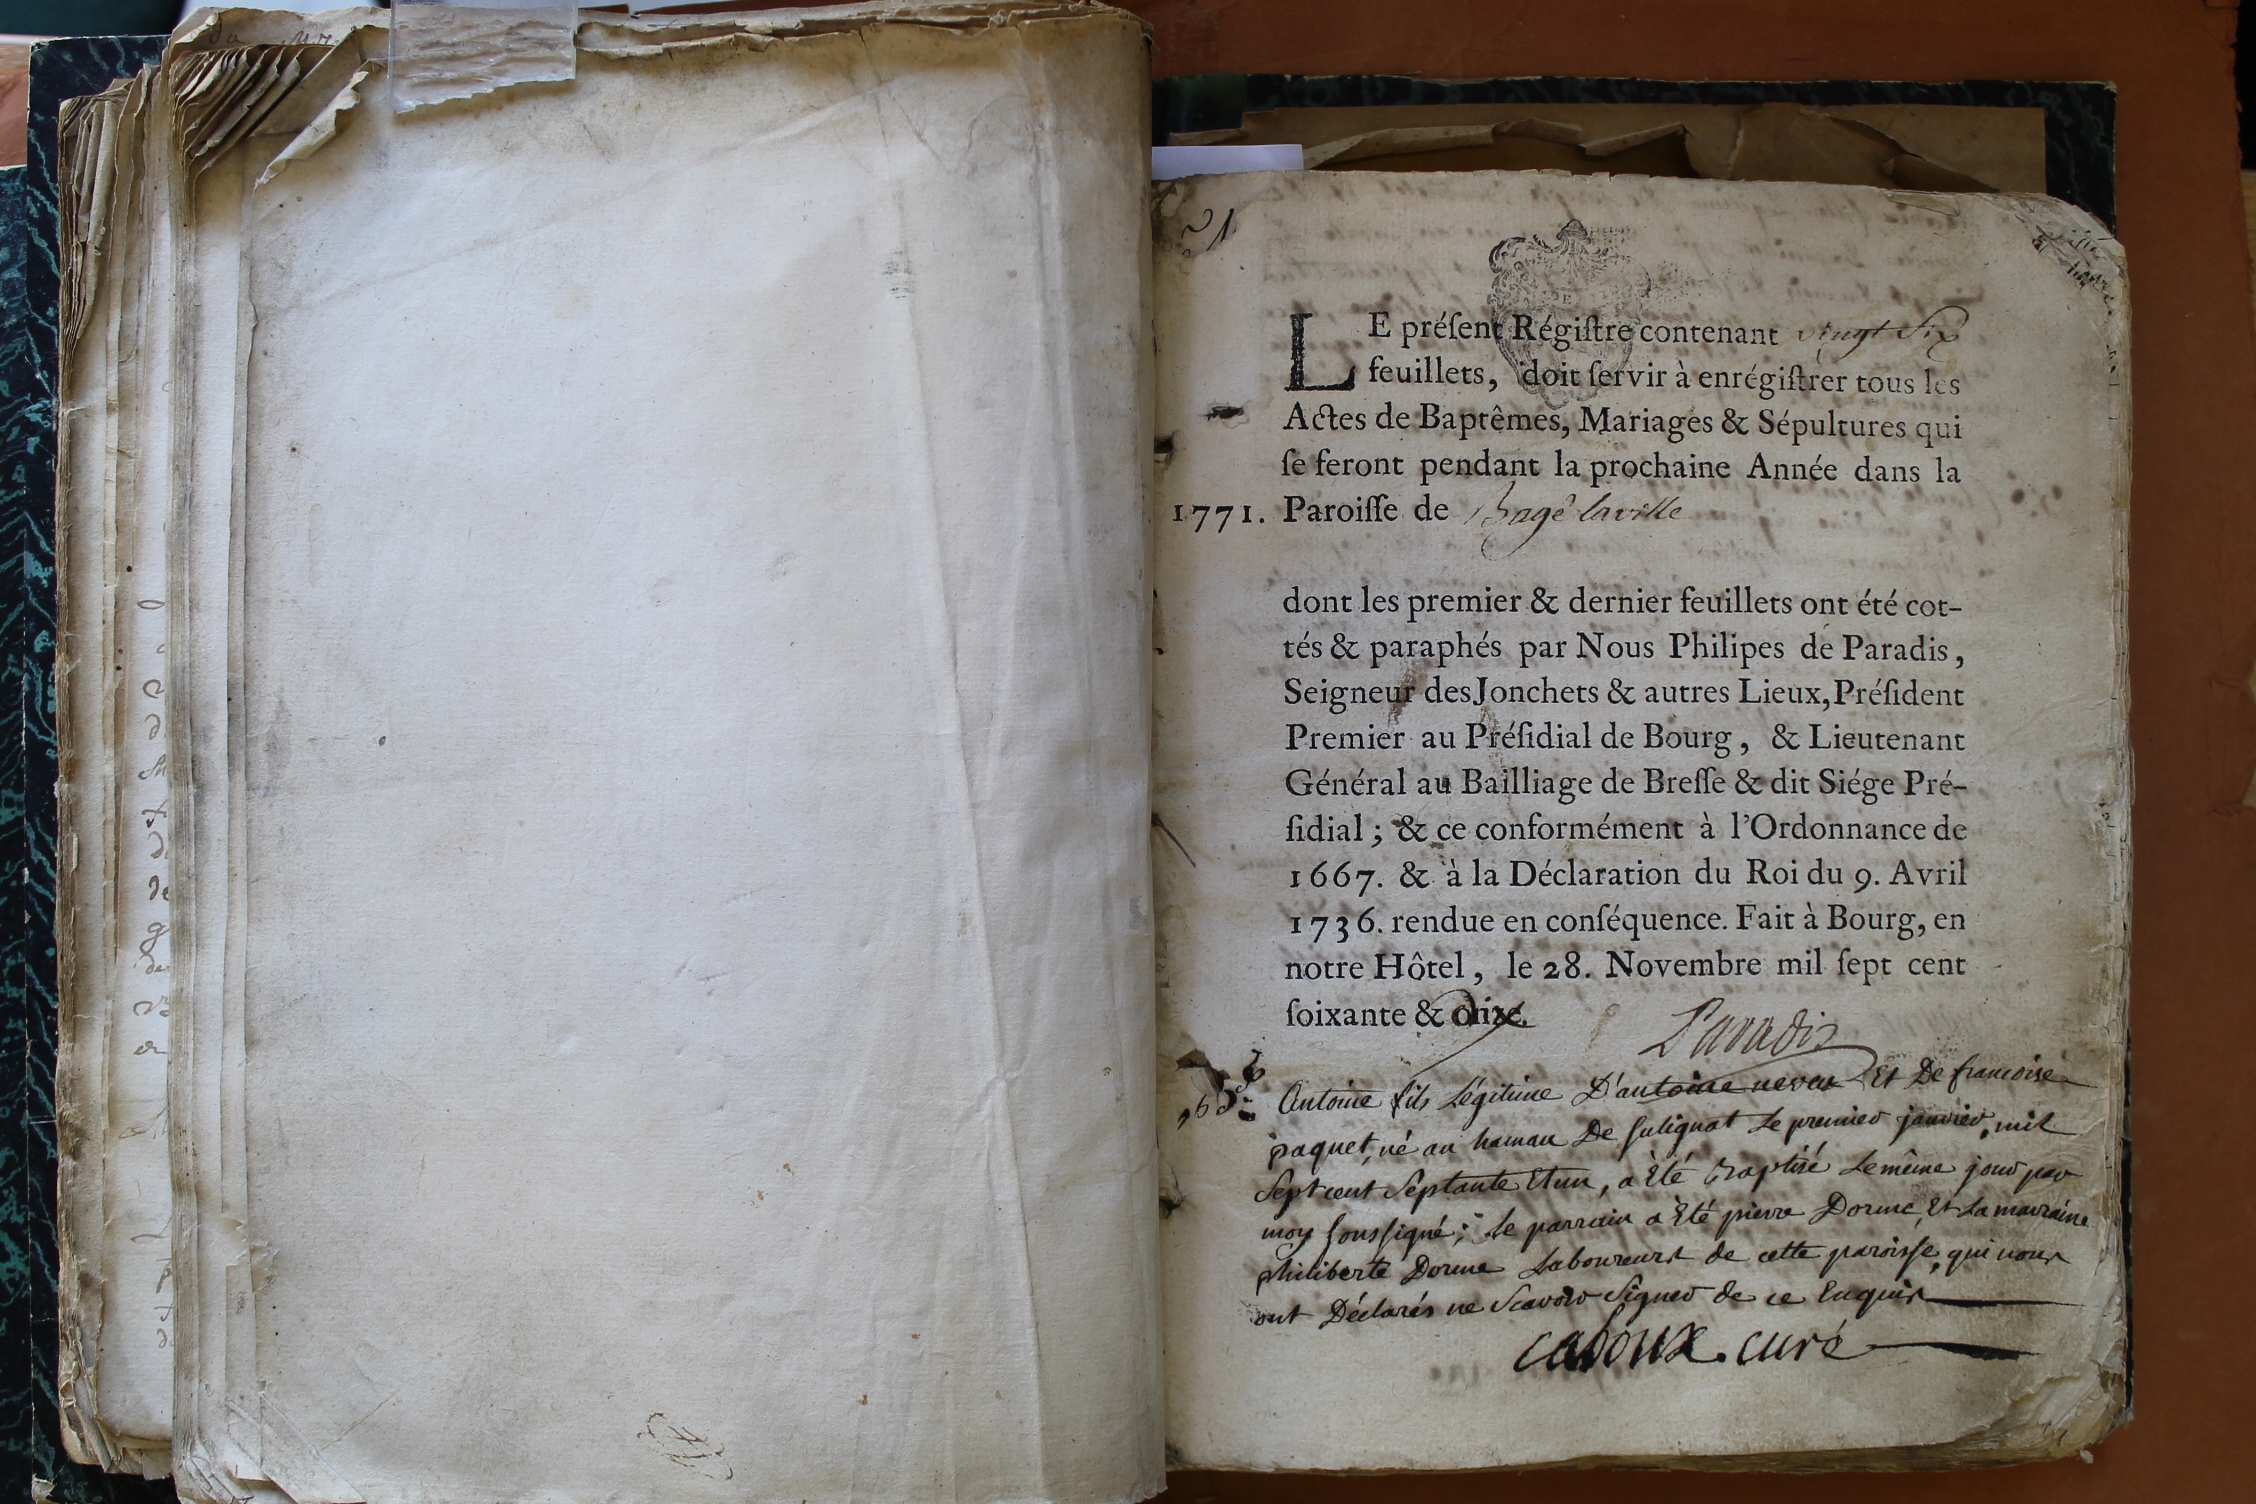 LE préſent Régiſtre contenant vingt Six
feuillets, doit ſervir à enrégiſtrer tous les
Actes de Baptêmes, Mariages & Sépultures qui
ſe feront pendant la prochaine Année dans la
1771. Paroiſſe de Bagé laville
dont les premier & dernier feuillets ont été cot-
tés & paraphés par Nous Philipes de Paradis,
Seigneur des Jonchets & autres Lieux, Préſident
Premier au Préſidial de Bourg, & Lieutenant
Général au Bailliage de Breſſe & dit Siége Pré-
ſidial; & ce conformément à l'Ordonnance de
1667. & à la Déclaration du Roi du 9. Avril
1736. rendue en conſéquence. Fait à Bourg, en
notre Hôtel, le 28. Novembre mil ſept cent
ſoixante & dix.
Paradis
Antoine fils Légitime D'antoine neveu Et De francoise
paquet, né au hamau De Sulignat Le premier janvier mil
Sept cent Septante Etun, a Eté Baptisé Le même jour par
moy soussigné; Le parrain a Eté pierre Dorme, Et La marraine
philiberte Dorme Laboureurs de cette paroisse, qui nous
ont Déclarés ne Scavoir Signer de ce Enquis
cadoux. curé